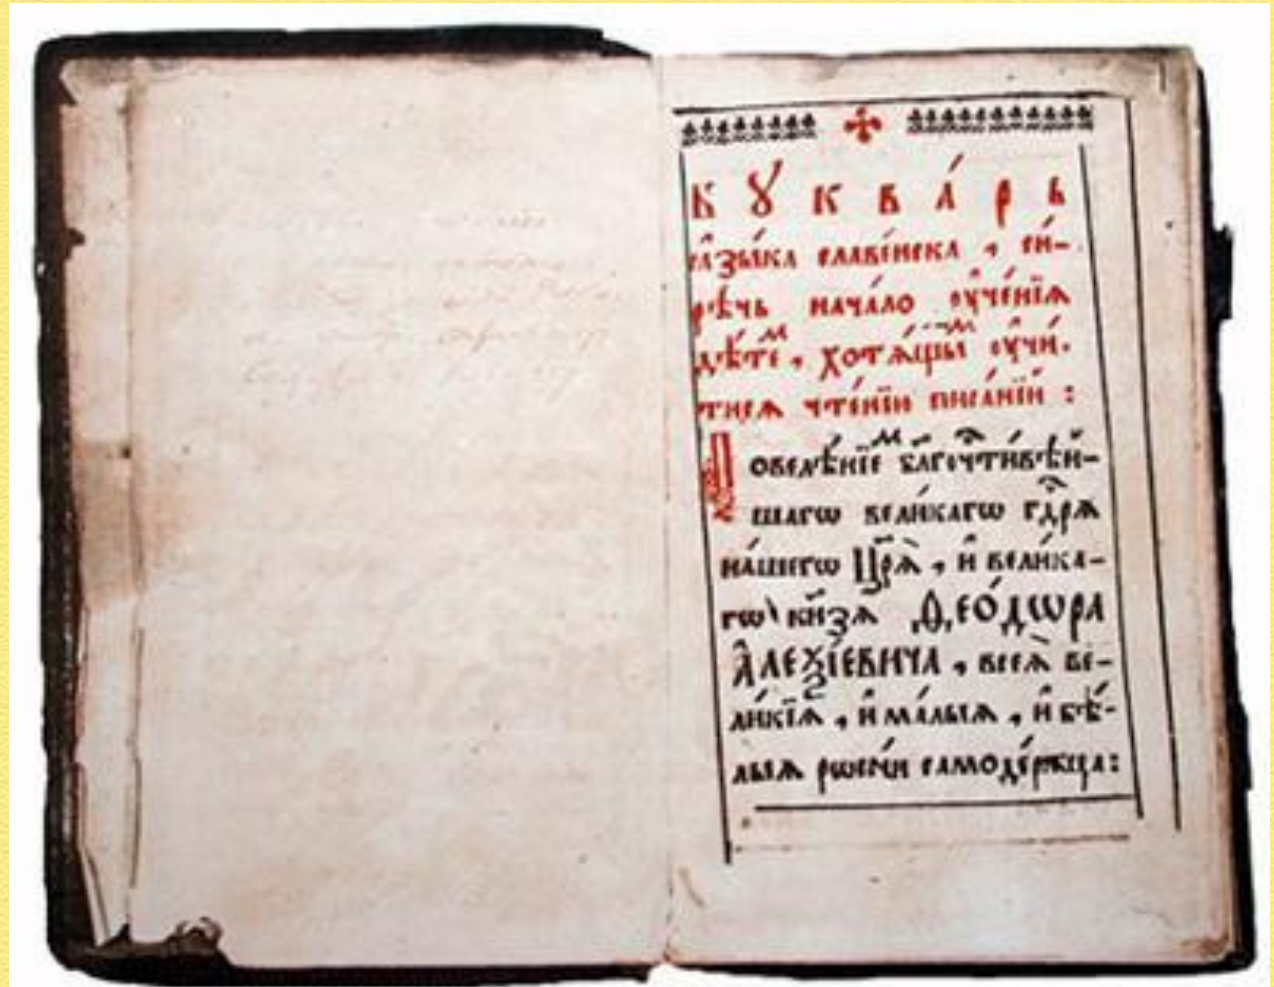 БУКВА́РЬ
ꙗ҆зы́ка славе́нска, си́-
рѣчь нача́ло ᲂу҆че́нїѧ
дѣ́теⷨ, хотѧ́щыⷨ ᲂу҆чи́-
тисѧ чте́нїи писа́нїй :
Повелѣ́нїеⷨ бл҃гочⷭ҇ти́вѣй-
шагѡ вели́кагѡ гдⷭ҇рѧ
на́шегѡ Цр҃ѧ̀, и҆ вели́ка-
гѡ кн҃зѧ Ѳео́дѡра
А҆леѯі́евича, всеѧ̀ ве-
ли́кїѧ, и҆ ма́лыѧ, и҆ бѣ́-
лыѧ рѡсі́и самоде́ржца :